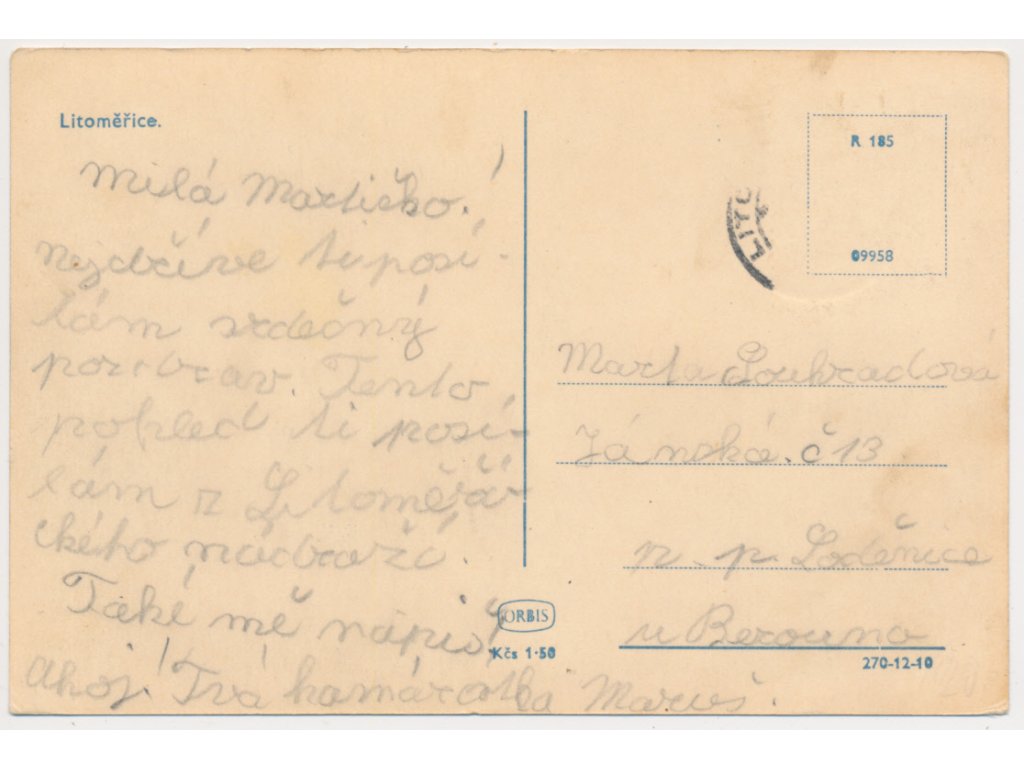 Litoměřice.
Milá Martičko!
Nejdříve ti posí-
lám srdečný
pozdrav. Tento
pohled ti posí-
lám z Litoměřic-
kého nádraží.
Také mě napiš
Ahoj! Tvá kamarádka Maruš.
ORBIS
Kčs 1·50
R 185
09958
LITO
Marta Souhradová
Jánská č 13
p. Loděnice
u Berouna
270-12-10